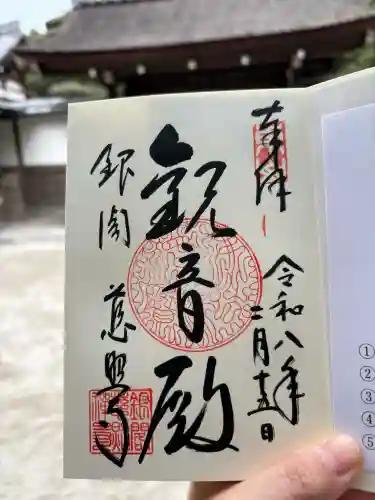 奉拝
令和八年
二月十五日
観音殿
銀閣
慈照寺
①
②
③
④
⑤